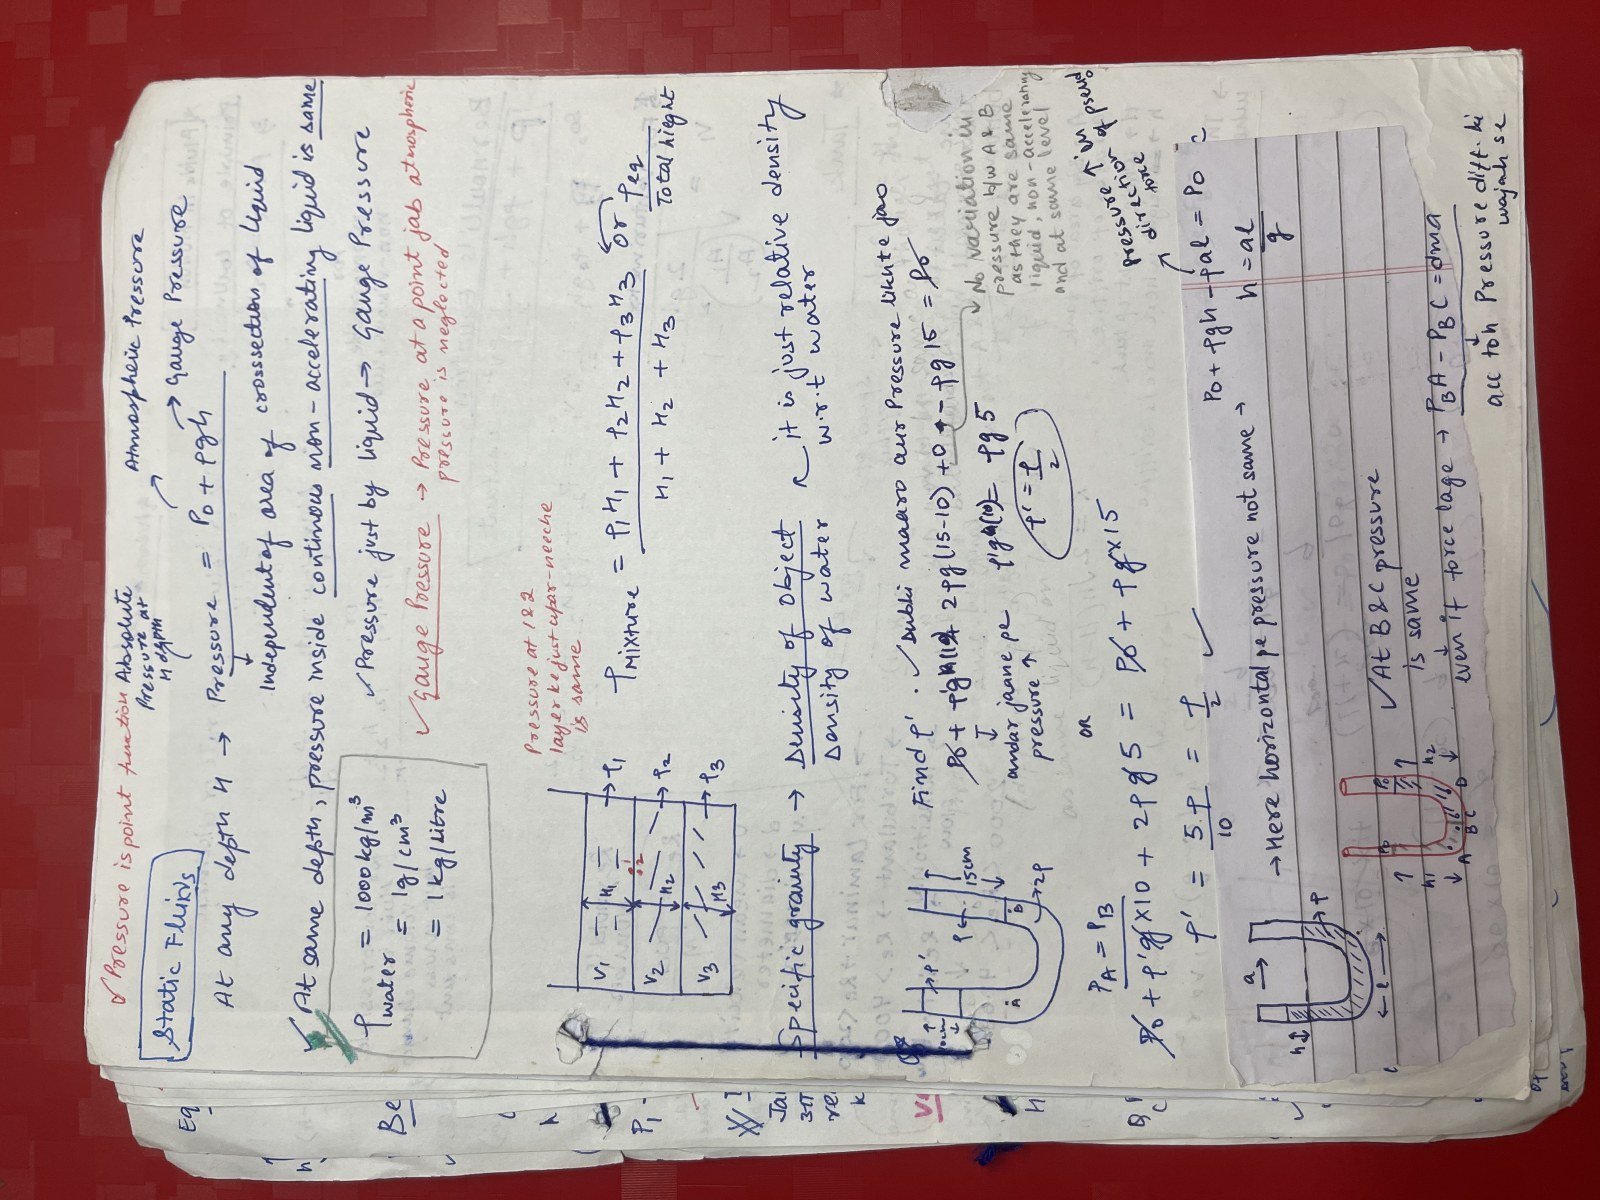 ✓Pressure is point function
Static Fluids
Absolute
Pressure at
H depth
Atmospheric Pressure
At any depth H → Pressure = P₀ + ρgh → Gauge Pressure
Independent of area of crosssection of liquid
✓At same depth, pressure inside continous non-accelerating liquid is same
ρwater = 1000kg/m³
= 1g/cm³
= 1kg/litre
✓Pressure just by liquid → Gauge Pressure
✓Gauge Pressure → Pressure at a point jab atmospheric
pressure is neglected
Pressure at 1 & 2
layer ke just upar-neeche
is same
V₁ H₁ → ρ₁
V₂ H₂ → ρ₂
V₃ H₃ → ρ₃
ρMixture = ρ₁H₁ + ρ₂H₂ + ρ₃H₃ or ρeq
H₁ + H₂ + H₃ Total hieght
→ Specific gravity → Density of object
Density of water
it is just relative density
w.r.t water
Find ρ'.
✓Dubki maaro aur Pressure likhte jao
P₀ + ρ'g(10) + 2ρg(15-10) + 0 - ρg15 = P₀
andar jaane pe
pressure ↑
ρ'g(10) = ρg5
ρ' = ρ/2
→ No variation in
pressure b/w A & B
as they are same
liquid, non-accelerating
and at same level
10cm ρ' ρ 15cm
A B 2ρ
or
P_A = P_B
P₀ + ρ'g×10 + 2ρg5 = P₀ + ρg×15
ρ' = 5ρ/10 = ρ/2 ✓
pressure ↑ in
direction of pseudo
force
a → h ρ l
→ Here horizontal pe pressure not same →
P₀ + ρgh - ρal = P₀
h = al/g
P₀ P₀
h₁ h₂
A B C D
✓At B & C pressure
is same
even if force lage → P_BA - P_BC = dma
acc toh Pressure diff. ki
wajah se
Eq
Be
P₁
Jai
3π
re
k
H